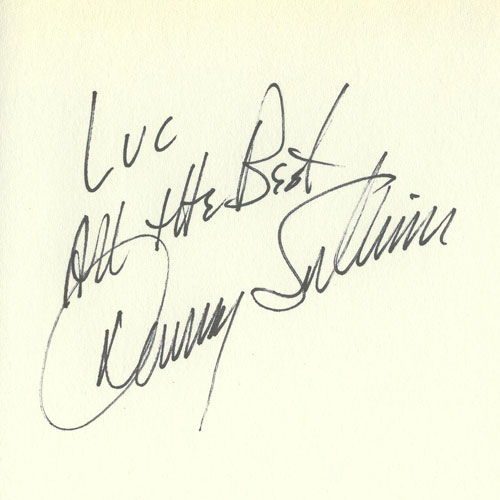 Luc
All the Best
Danny Sullivan